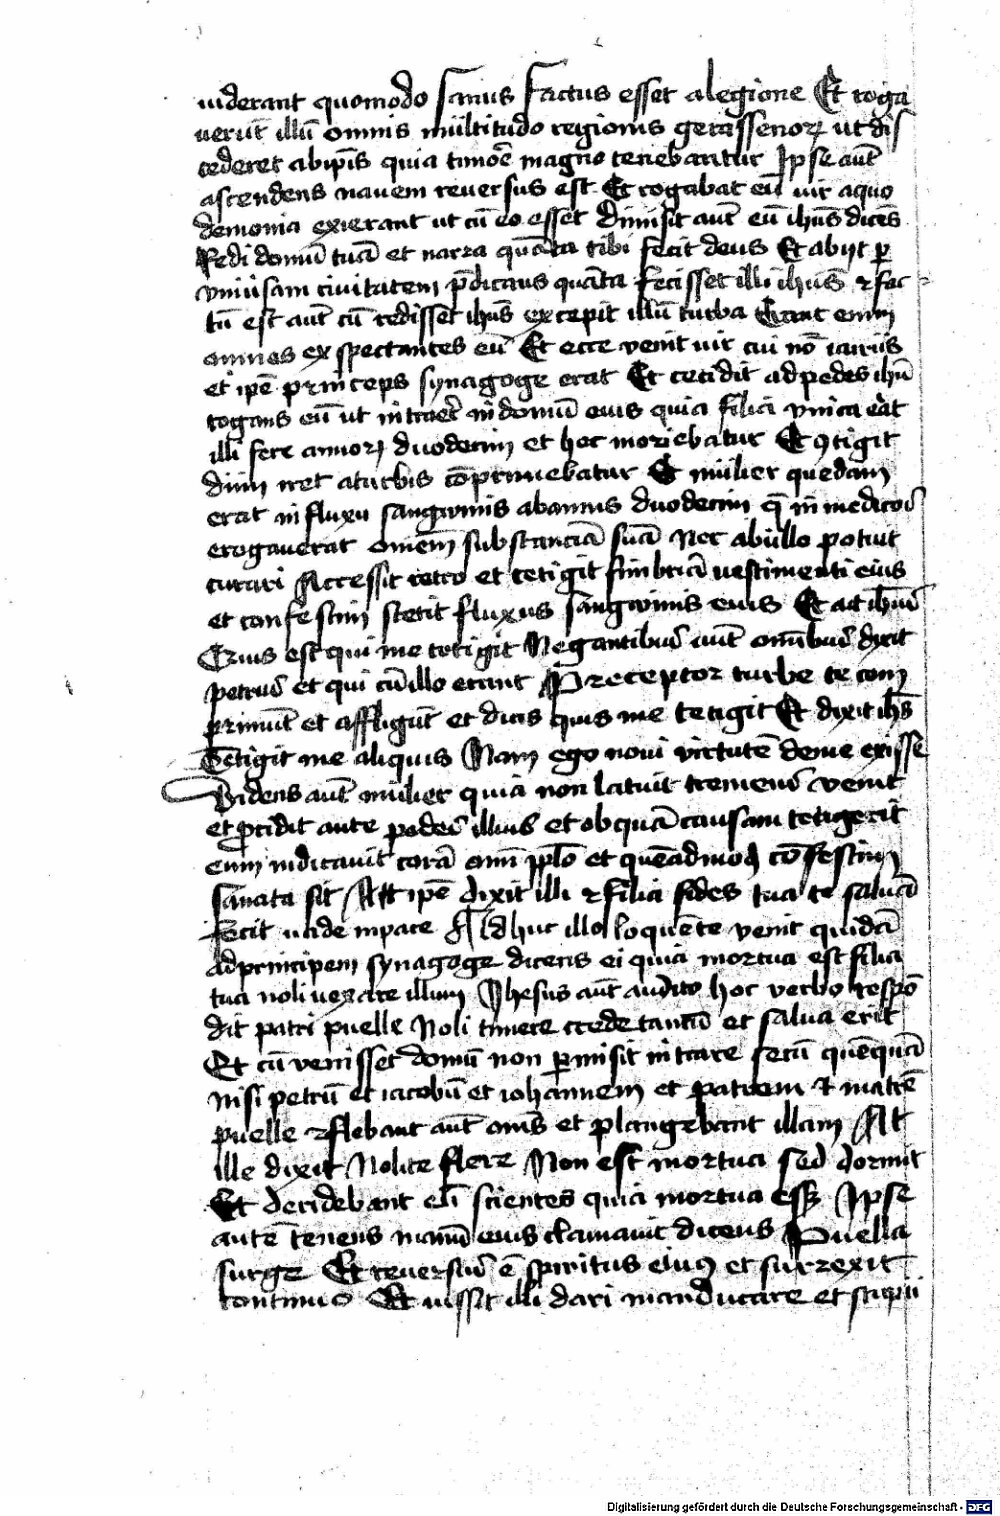 viderant quomodo sanus factus esset alegione Et roga
verūt illū omnis multitudo regionis gerassenoꝝ ut dis
cederet abip̄is quia timoē magno tenebantur Ipse aūt
ascendens nauem reuersus est Et rogabat eū vir aquo
demonia exierant ut cū eo esset Dimisit aūt eū ihūs dicēs
Redi domū tuā et narra quāta tibi fecit deus Et abijt ꝑ
vniūsam ciuitatem p̄dicans quāta fecisset illi ihūs ⁊ fac
tū est aūt cū redisset ihūs excepit illū turba Erant enim
omnes exspectantes eū Et ecce venit vir cui nō iairus
et ip̄e princeps synagoge erat Et cecidit adpedes ihū
rogans eū ut intraēt indomū euis quia filia vnica eāt
illi fere annoꝝ duodecim et hec moriebatur Et ꝯtigit
dum iret aturbis cōprimebatur Et mulier quedam
erat influxu sangwinis abannis duodecim q̄ inmedicos
erogauerat omēm substanciā suā Nec abullo potuit
curari Accessit retro et tetigit fimbriā vestimenti eius
et confestim stetit fluxus sangwinis euis Et ait ihūs
Quis est qui me tetigit Negantibus aūt omībus dixit
petrus et qui cū illo erant Preceptor turbe te com
primūt et affligūt et dicis quis me tetigit Et dixit ihs̄
Tetigit me aliquis Nam ego noui virtutē deme exisse
Videns aūt mulier quia non latuit tremens venit
et ꝓcidit ante pedes illius et ob quā causam tetigerit
eum indicauit corā omī pplō et quēadmoꝺ cōfestim
sanata sit At ip̄e dixit illi ⁊ filia fides tua te saluā
fecit vade inpace Adhuc illo loquēte venit quidā
adprincipem synagoge dicens ei quia mortua est filia
tua noli vexare illum Ihesus aūt audito hoc verbo respō
dit patri puelle Noli timere crede tantū et salua erit
Et cū venisset domū non ꝑmisit intrare secū quēquā
nisi petrū et iacobū et iohannem et patrem ⁊ matrē
puelle ⁊ flebant aūt omēs et plangebant illam At
ille dixit Nolite flere Non est mortua sed dormit
Et deridebant eū scientes quia mortua essꝫ Ipse
autē tenens manū euis clamauit dicens Puella
surge Et reuersus ē spiritus eiuꝰ et surrexit
continuo Et iussit illi dari manducare et stupu
Digitalisierung gefördert durch die Deutsche Forschungsgemeinschaft - DFG